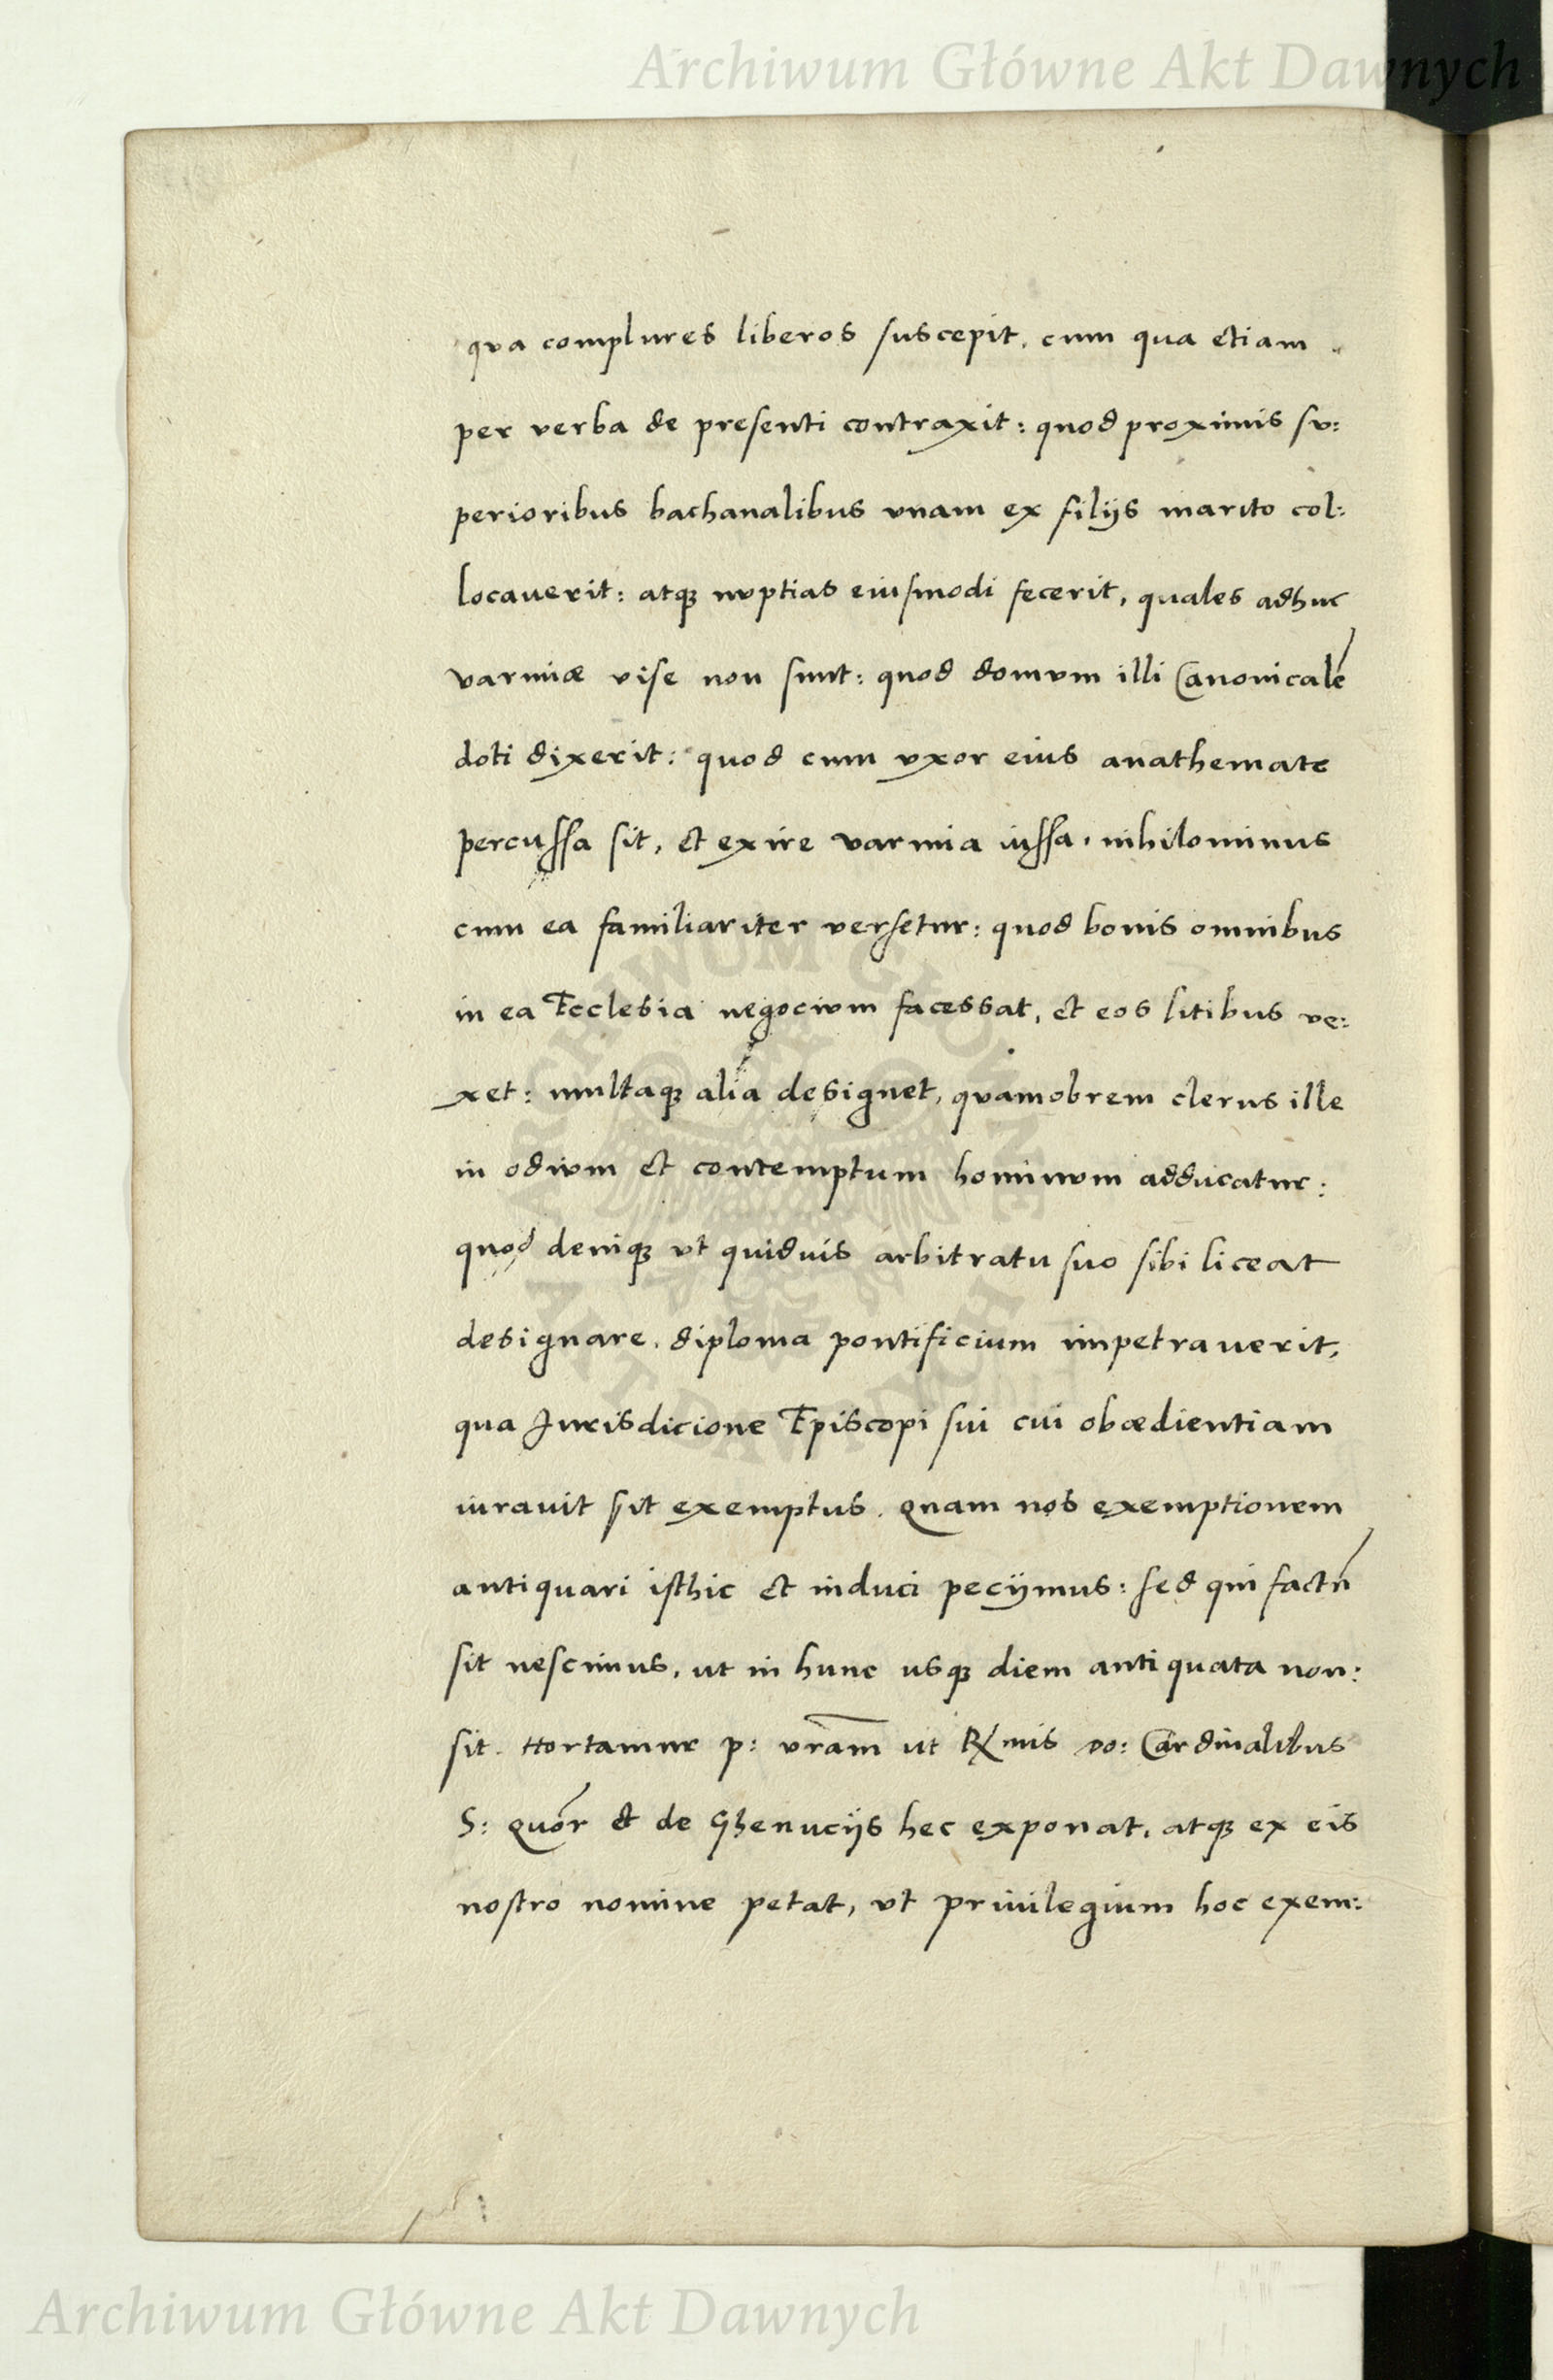 Archiwum Główne Akt Dawnych
qua complures liberos suscepit, cum qua etiam
per verba de presenti contraxit: quod proximis su:
perioribus bachanalibus vnam ex filijs marito col:
locauerit: atqꝫ nuptias eiusmodi fecerit, quales adhuc
varmiæ vise non sunt: quod domum illi Canonicalē
doti dixerit: quod cum vxor eius anathemate
percussa sit, et exire varmia iussa, nihilominus
cum ea familiariter versetur: quod bonis omnibus
in ea Ecclesia negocium facessat, et eos litibus ve:
xet: multaqꝫ alia designet, quamobrem clerus ille
in odium et contemptum hominum adducatur:
quod deniqꝫ vt quiduis arbitratu suo sibi liceat
designare, diploma pontificium impetrauerit,
qua Jurisdicione Episcopi sui cui obædientiam
iurauit sit exemptus. Quam nos exemptionem
antiquari isthic et induci pecijmus: sed qui factū
sit nescimus, ut in hunc usqꝫ diem antiquata non:
sit. Hortamur p: vrām ut R mis do: Cardinalibus
S: Quōr et de Ghenucijs hec exponat, atqꝫ ex eis
nostro nomine petat, vt priuilegium hoc exem:
ARCHIWUM GŁÓWNE AKT DAWNYCH
Archiwum Główne Akt Dawnych